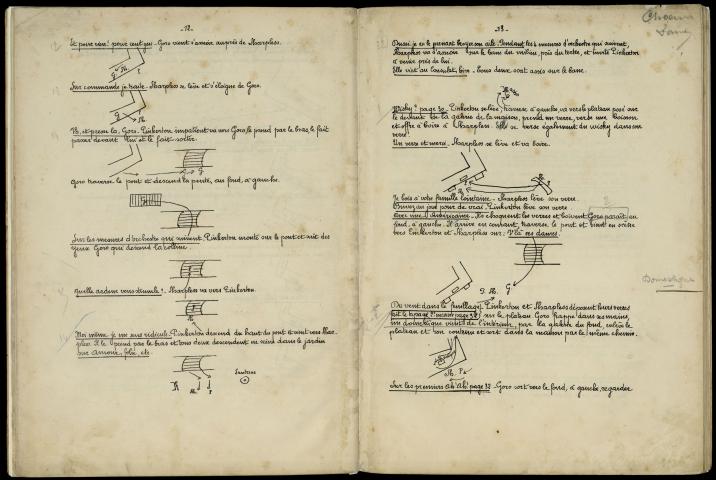 _12_
Et pour rien! pour cent yen_ Goro vient s'asseoir auprès de Sharpless.
G. Sh. P.
Sur commande je traite_ Sharpless se lève et s'éloigne de Goro.
G
Sh.
Va, et presse la, Goro. Pinkerton impatient va vers Goro, le prend par le bras, le fait
passer devant lui et le fait sortir.
Goro traverse le pont et descend la pente, au fond, à gauche.
Sur les mesures d'orchestre qui suivent, Pinkerton monte sur le pont et suit des
yeux Goro qui descend la colline.
Quelle ardeur vous stimule!_ Sharpless va vers Pinkerton.
Moi même je me sens ridicule_ Pinkerton descend du haut du pont et vient vers Shar-
pless. Il le prend par le bras et tous deux descendent en scène dans le jardin
sur amour, folie etc.
Sh. P
Lanterne
_13_
Aussi je vs le pendant les 4 mesures d'orchestre qui suivent,
Sharpless va s'asseoir sur le banc du milieu, près du tertre, et invite Pinkerton
à venir près de lui.
Elle vint au Consulat, hier_ Tous deux sont assis sur le banc.
Wisky? page 30_ Pinkerton se lève, traverse à gauche, va vers le plateau posé sur
le devant de la galerie de la maison, prend un verre, verse une boisson
et offre à boire à Sharpless. Il se verse également du wisky dans son
verre.
Un verre et merci. Sharpless se lève et va boire.
Je bois à votre famille lointaine_ Sharpless lève son verre.
Buvez au jour pour de vrai. Pinkerton lève son verre
avec une Américaine_ Ils choquent les verres et boivent. Goro paraît, au
fond, à gauche. Il arrive en courant, traverse le pont et vient en scène
vers Pinkerton et Sharpless sur: V'là ces dames.
G. Sh. G
Du vent dans le feuillage. Pinkerton et Sharpless déposent leurs verres
sur le plateau. Goro frappe dans ses mains,
un domestique vient de l'intérieur, par la galerie du fond, enlève le
plateau et son contenu et sort dans la maison par le même chemin.
Sh. P.
Sur les premiers ah! ah! page 32_ Goro sort vers le fond, à gauche, regarder
Domestique